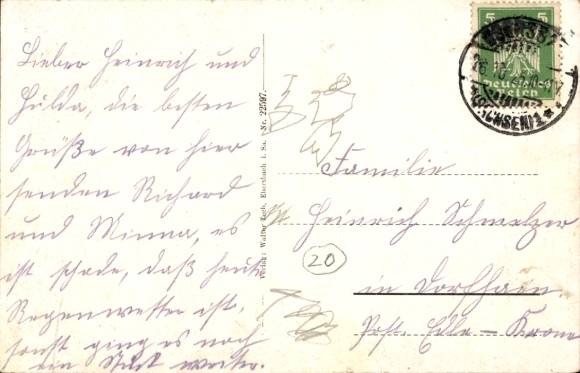 Lieber Heinrich und
Hulda, die besten
Grüße von hier
senden Richard
und Minna, es
ist schade, daß heute
Regenwetter ist,
sonst ging es noch
ein Stück weiter.
Verlag: Walter Ebersbach i. Sa. Nr. 22597.
5 5
Deutsches
Reich
(SACHSEN) 1
Familie
Heinrich Schmelzer
20
in Dorfhain.
Post. Edle – Krone